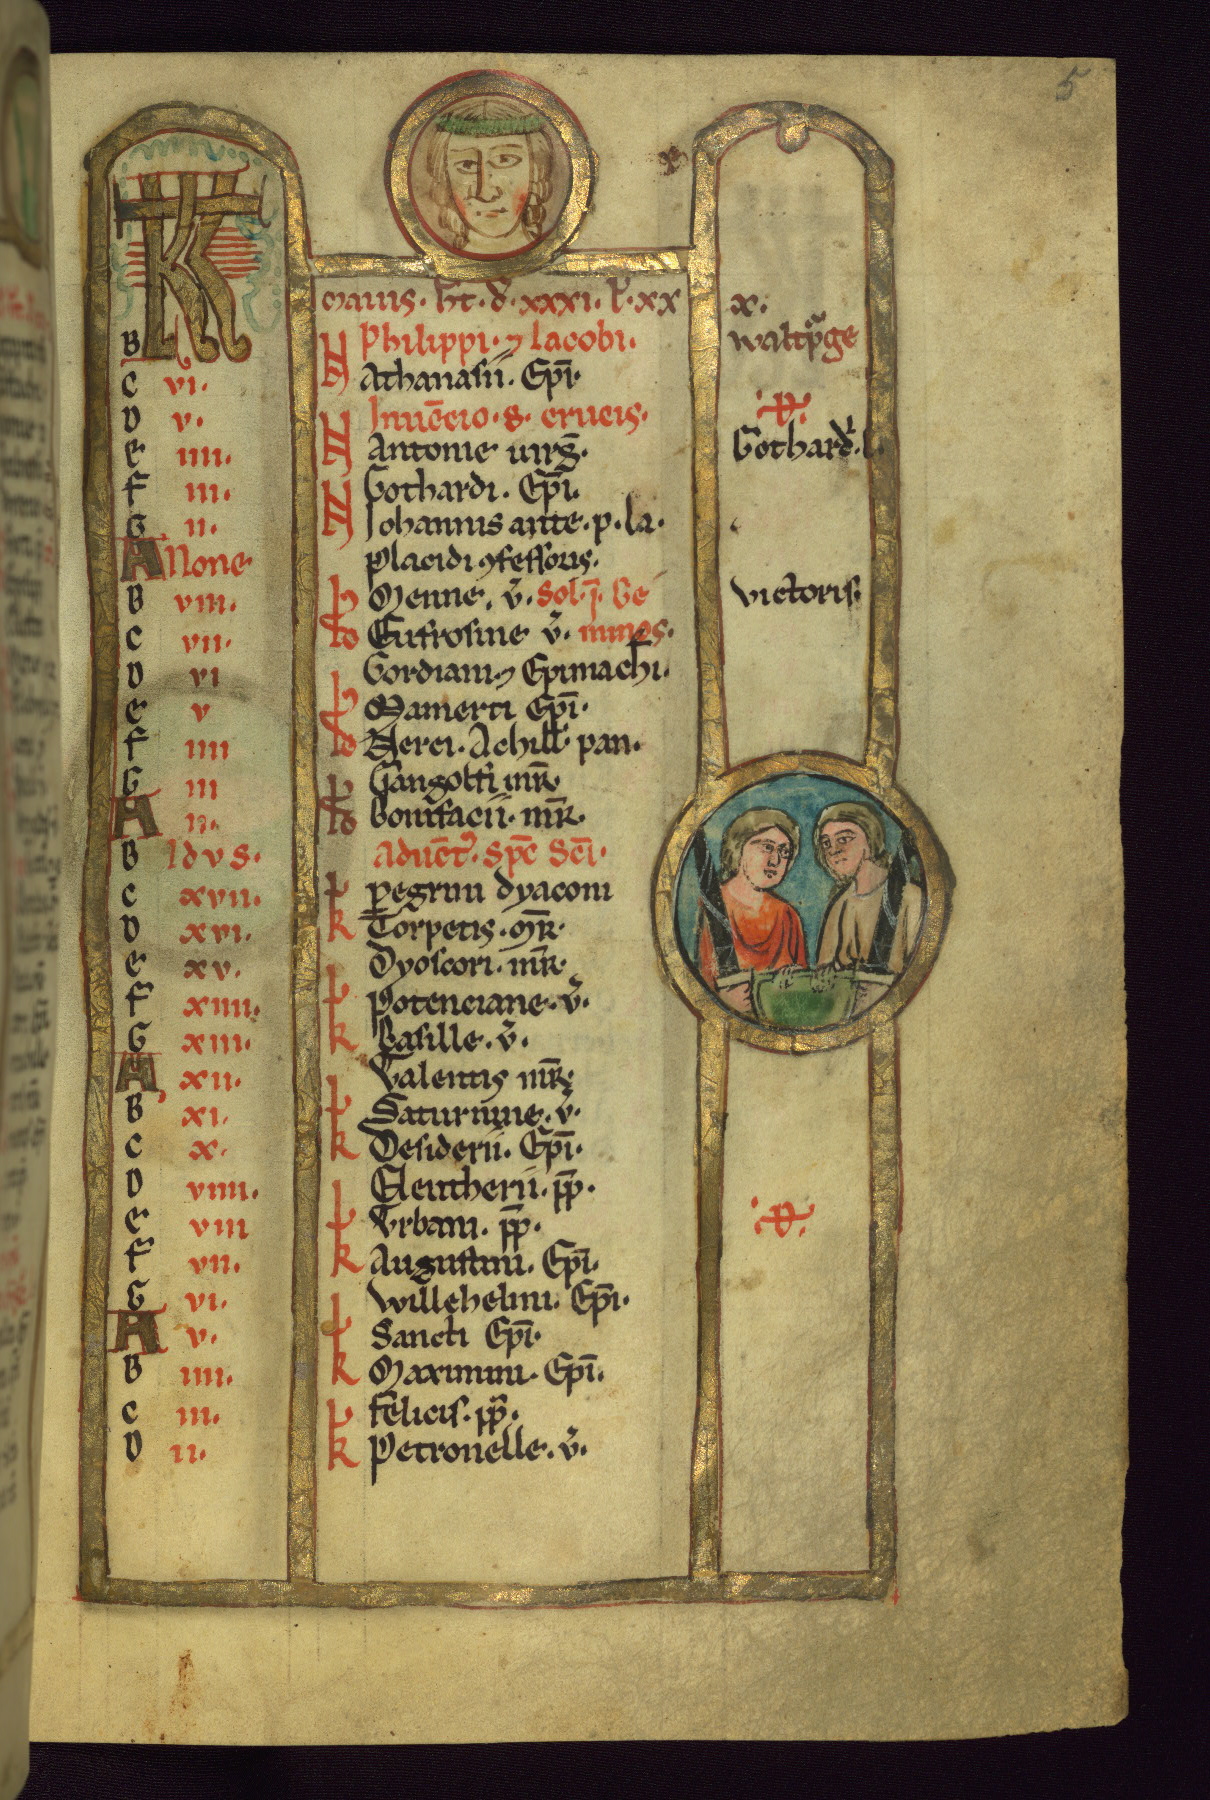 5
KL Maius. ht. d. xxxi. l. xx x.
B Philippi. ⁊ Iacobi. waltp͛ge
C vi. Athanasii. Ep̄i.
D v. Inuēcio. s. crucis.
E iiii. Antonie uirḡ. Gothard. l.
F iii. Gothardi. Ep̄i.
G ii. Johannis ante. p. la.
A None Placidi ꝯfessoris.
B viii. Menne. v̄. Sol. i. Ge victoris.
C vii. Eufrosine v̄. minos.
D vi Gordiani ⁊ Epimachi.
E v Mamerti Ep̄i.
F iiii Nerei. Achill. pan.
G iii Gangolfi mr̄.
A ii. Bonifacii. mr̄.
B Idvs. Aduēt. Sp̄c Sc̄i.
C xvii. pegrini dyaconi
D xvi. Torpetis. mr̄.
E xv. Dyoscori. mr̄.
F xiiii. Potenciane. v̄.
G xiii. Basille. v̄.
A xii. Valentis mr̄.
B xi. Saturnine. v̄.
C x. Desiderii. Ep̄i.
D viiii. Eleutherii. pp̄.
E viii Vrbani. pp̄.
F vii. Augustini. Ep̄i.
G vi. Willehelmi. Ep̄i.
A v. Sancti Ep̄i.
B iiii. Maximini. Ep̄i.
C iii. Felicis. pp̄.
D ii. Petronelle. v̄.